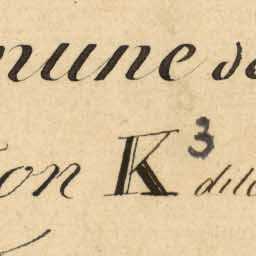 mune de
ion K³ dite